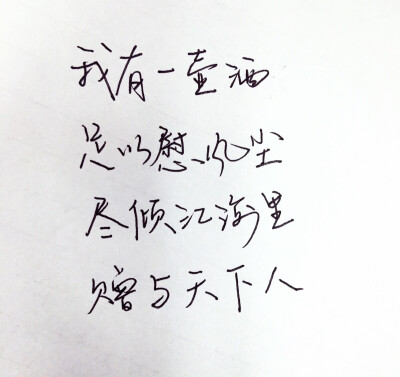 我有一壶酒
足以慰风尘
尽倾江海里
赠与天下人